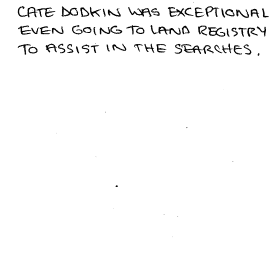 CATE DODKIN WAS EXCEPTIONAL
EVEN GOING TO LAND REGISTRY
TO ASSIST IN THE SEARCHES.